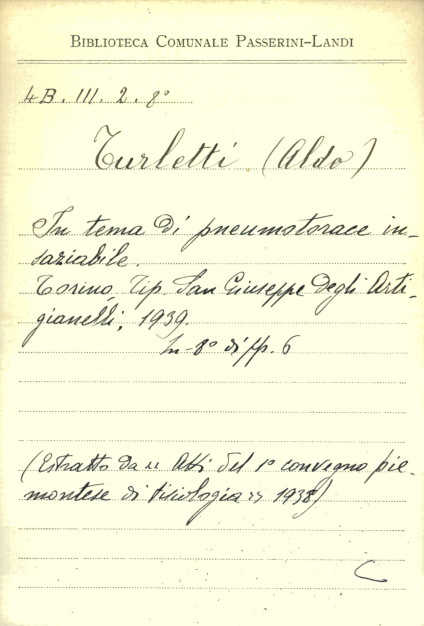 BIBLIOTECA COMUNALE PASSERINI-LANDI
4B. III. 2. 8°
Turletti (Aldo)
In tema di pneumotorace in-
saziabile.
Torino, Tip. San Giuseppe degli Arti-
gianelli, 1939.
In-8° di pp. 6
(Estratto da « Atti del 1° convegno pie-
montese di tisiologia » 1938)
C